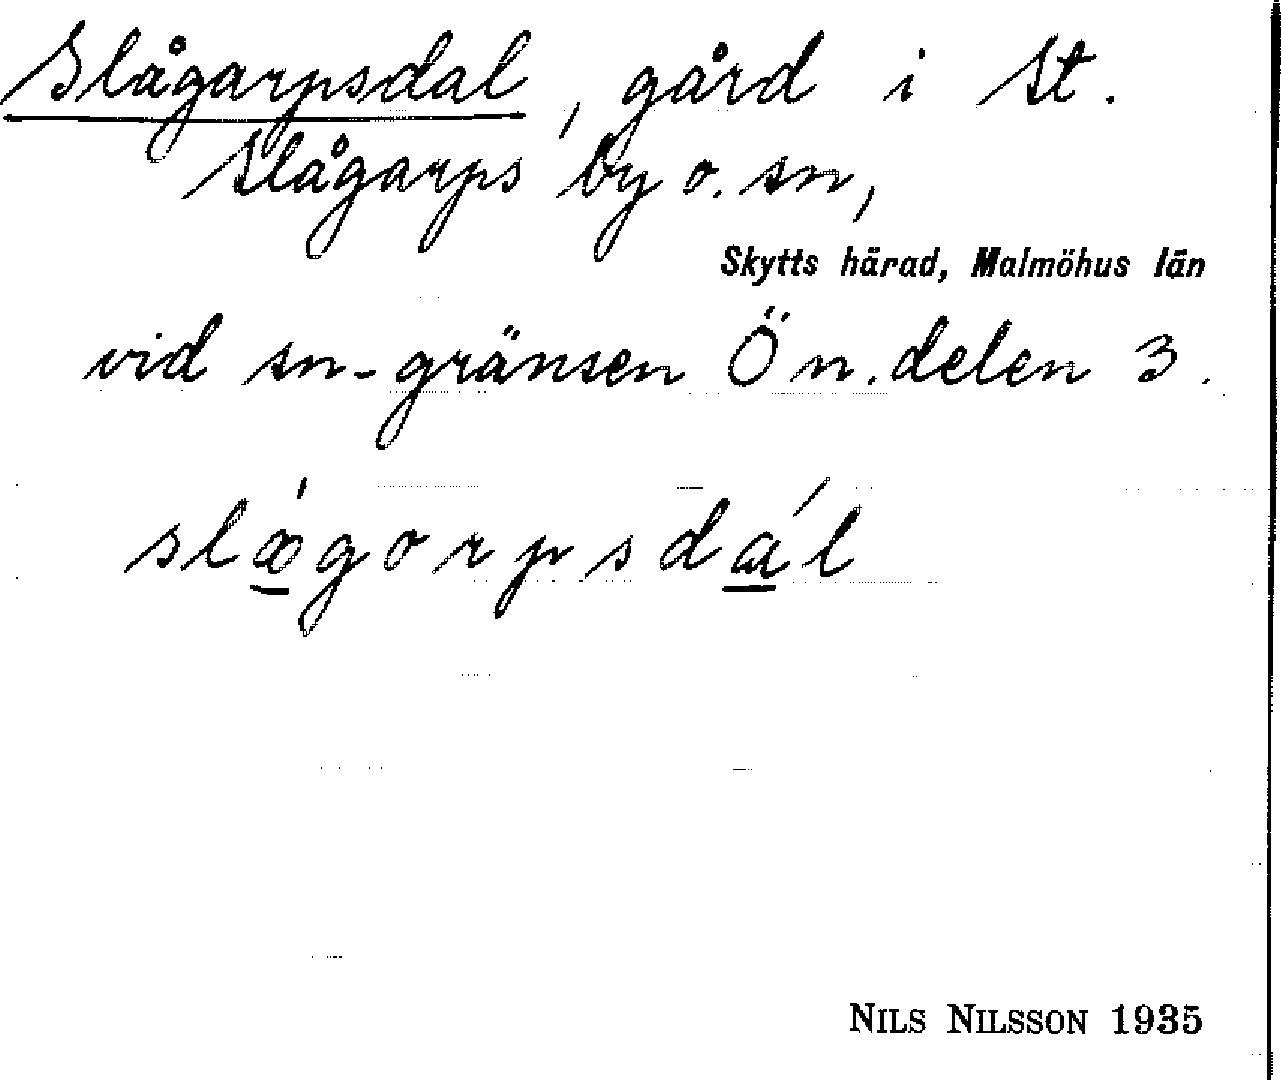 Slågarpsdal, gård i St.
Slågarps by o. sn,
Skytts härad, Malmöhus län
vid sn-gränsen Ö n. delen 3.
slǿgorpsdál
NILS NILSSON 1935